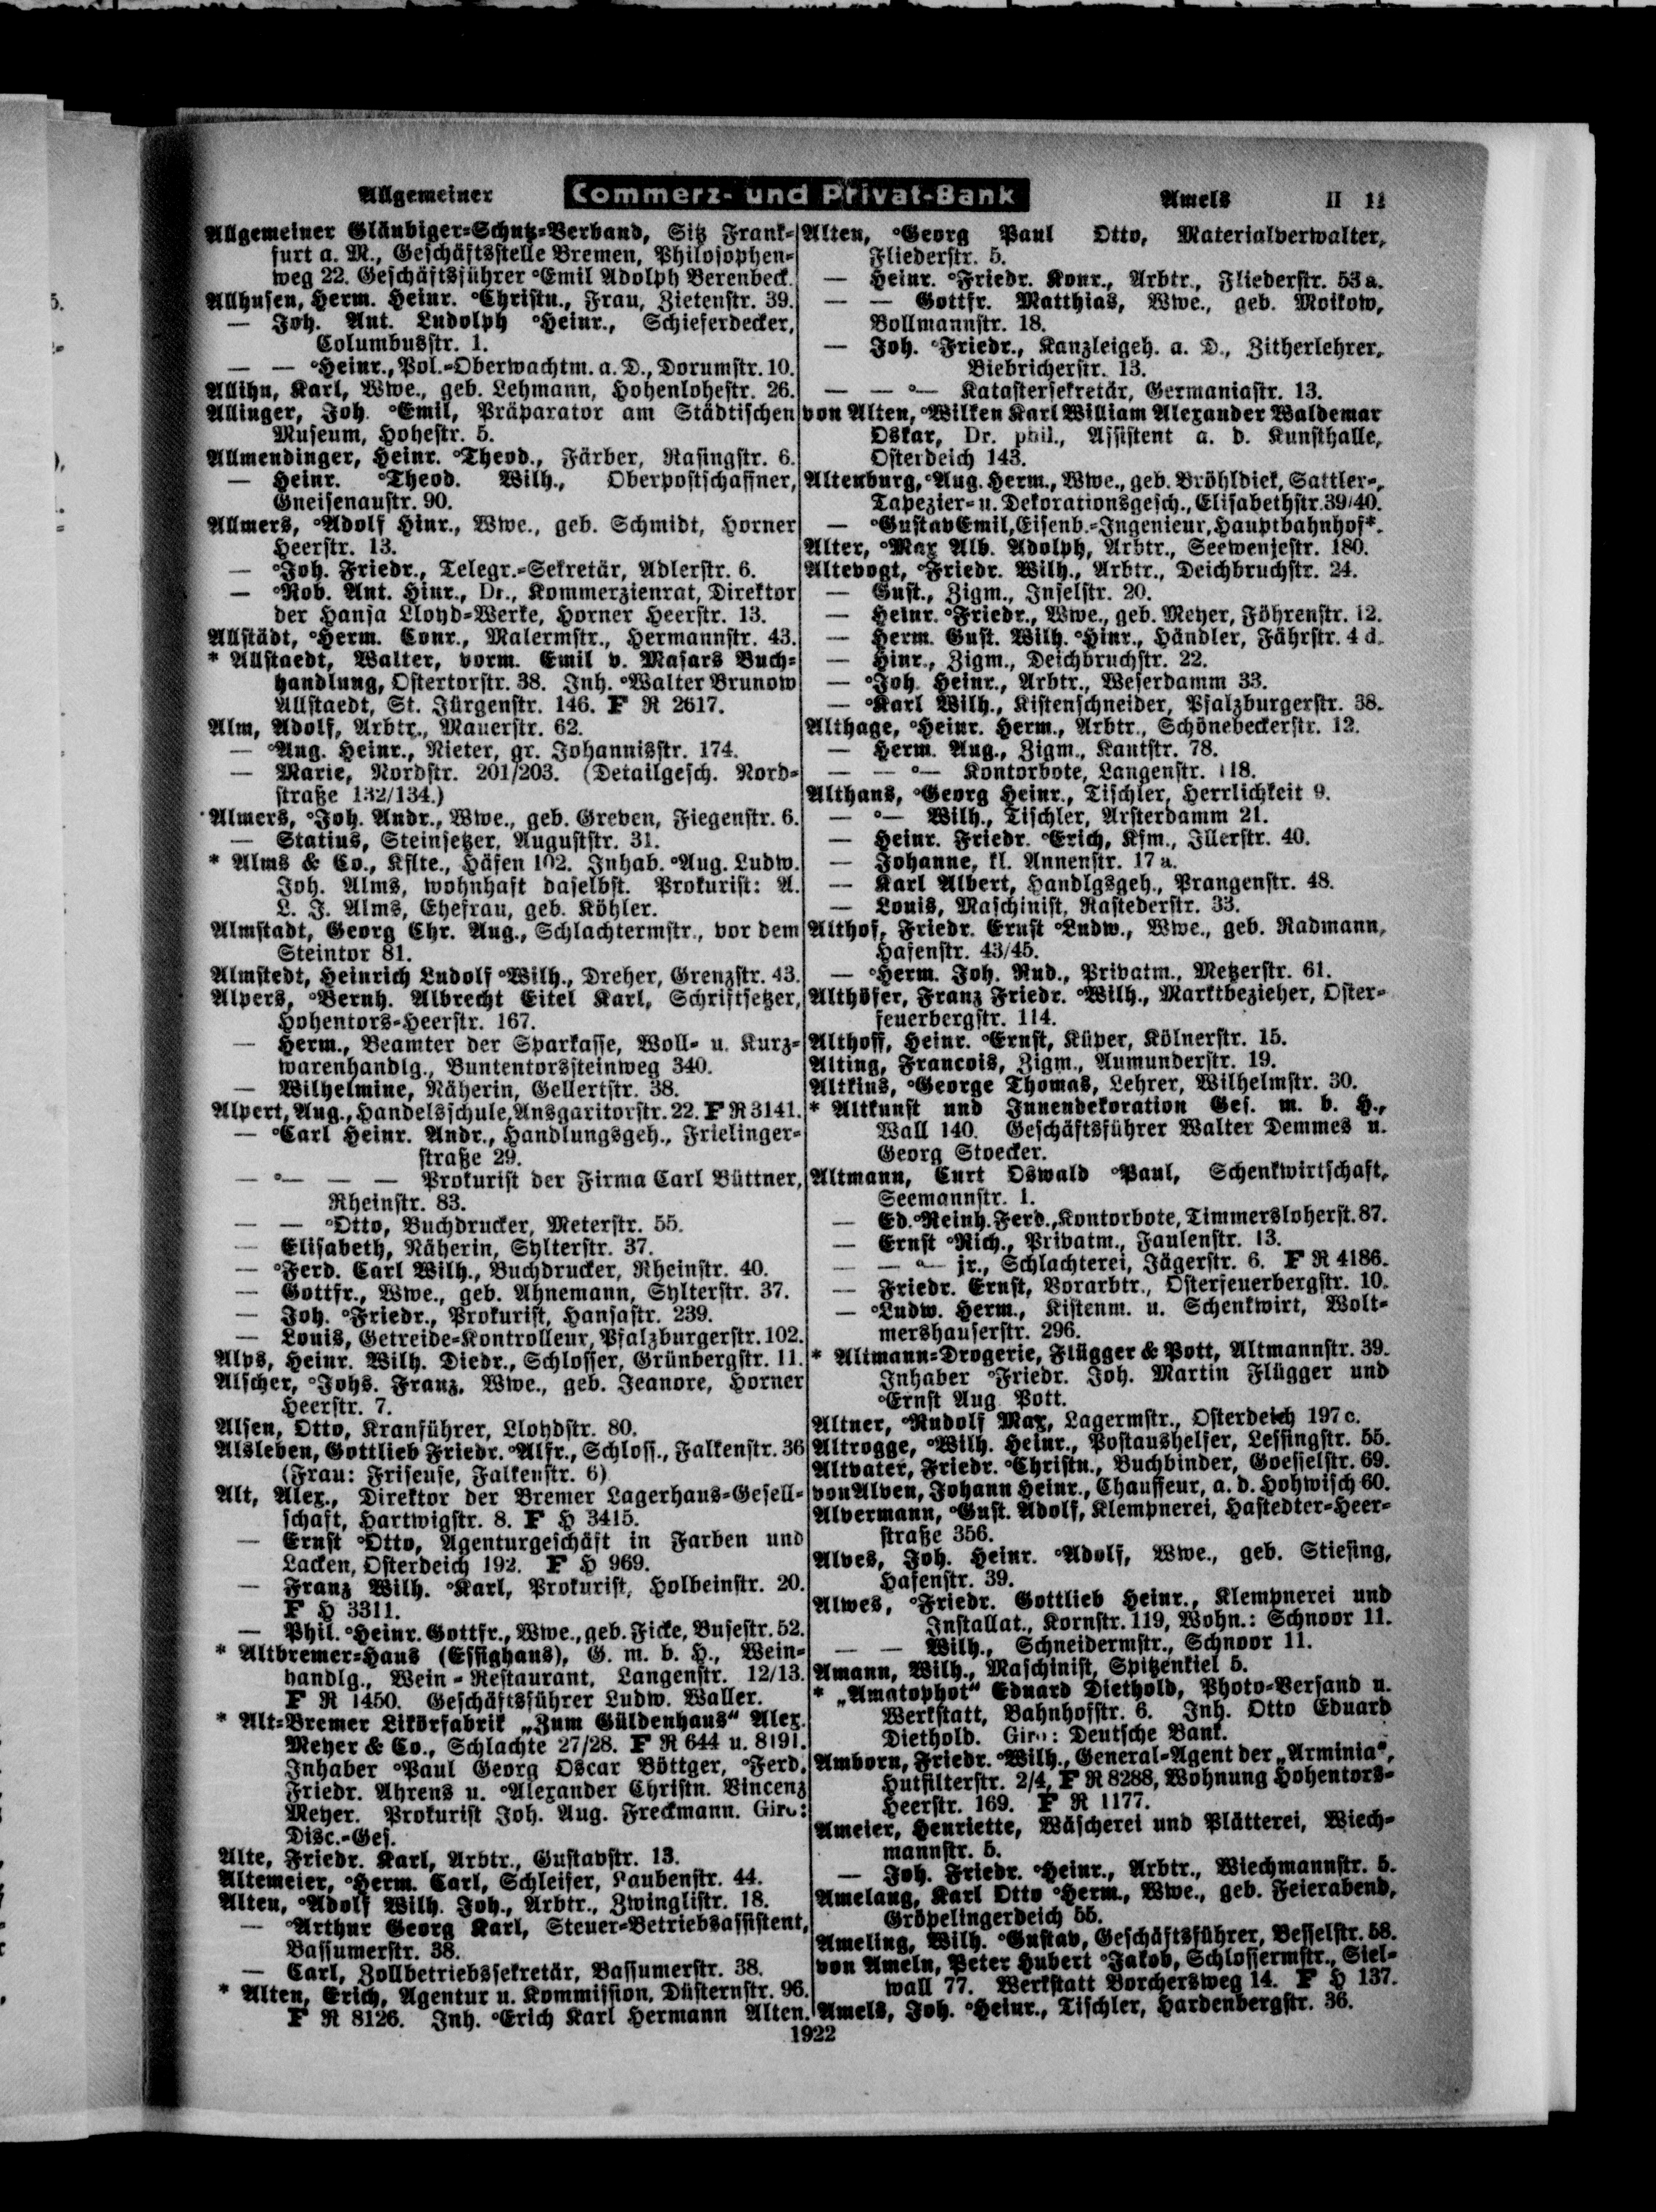 Allgemeiner
Commerz- und Privat-Bank
Amels II 11
Allgemeiner Gläubiger=Schutz=Verband, Sitz Frank=
furt a. M., Geschäftsstelle Bremen, Philosophen=
weg 22. Geschäftsführer °Emil Adolph Berenbeck.
Allhusen, Herm. Heinr. °Christn., Frau, Zietenstr. 39.
— Joh. Ant. Ludolph °Heinr., Schieferdecker,
Columbusstr. 1.
— — °Heinr., Pol.=Oberwachtm. a. D., Dorumstr. 10.
Allihn, Karl, Wwe., geb. Lehmann, Hohenlohestr. 26.
Allinger, Joh. °Emil, Präparator am Städtischen
Museum, Hohestr. 5.
Allmendinger, Heinr. °Theod., Färber, Rasingstr. 6.
— Heinr. °Theod. Wilh., Oberpostschaffner,
Gneisenaustr. 90.
Allmers, °Adolf Hinr., Wwe., geb. Schmidt, Horner
Heerstr. 13.
— °Joh. Friedr., Telegr.=Sekretär, Adlerstr. 6.
— °Rob. Ant. Hinr., Dr., Kommerzienrat, Direktor
der Hansa Lloyd=Werke, Horner Heerstr. 13.
Allstädt, °Herm. Conr., Malermstr., Hermannstr. 43.
* Allstaedt, Walter, vorm. Emil v. Masars Buch=
handlung, Ostertorstr. 38. Inh. °Walter Brunow
Allstaedt, St. Jürgenstr. 146. F R 2617.
Alm, Adolf, Arbtr., Mauerstr. 62.
— °Aug. Heinr., Nieter, gr. Johannisstr. 174.
— Marie, Nordstr. 201/203. (Detailgesch. Nord=
straße 132/134.)
Almers, °Joh. Andr., Wwe., geb. Greven, Fiegenstr. 6.
— Statius, Steinsetzer, Auguststr. 31.
* Alms & Co., Kflte., Häfen 102. Inhab. °Aug. Ludw.
Joh. Alms, wohnhaft daselbst. Prokurist: A.
L. J. Alms, Ehefrau, geb. Köhler.
Almstadt, Georg Chr. Aug., Schlachtermstr., vor dem
Steintor 81.
Almstedt, Heinrich Ludolf °Wilh., Dreher, Grenzstr. 43.
Alpers, °Bernh. Albrecht Eitel Karl, Schriftsetzer,
Hohentors=Heerstr. 167.
— Herm., Beamter der Sparkasse, Woll= u. Kurz=
warenhandlg., Buntentorssteinweg 340.
— Wilhelmine, Näherin, Gellertstr. 38.
Alpert, Aug., Handelsschule, Ansgaritorstr. 22. F R 3141.
— °Carl Heinr. Andr., Handlungsgeh., Frielinger=
straße 29.
— °— — — Prokurist der Firma Carl Büttner,
Rheinstr. 83.
— — °Otto, Buchdrucker, Meterstr. 55.
— Elisabeth, Näherin, Sylterstr. 37.
— °Ferd. Carl Wilh., Buchdrucker, Rheinstr. 40.
— Gottfr., Wwe., geb. Ahnemann, Sylterstr. 37.
— Joh. °Friedr., Prokurist, Hansastr. 239.
— Louis, Getreide=Kontrolleur, Pfalzburgerstr. 102.
Alps, Heinr. Wilh. Diedr., Schlosser, Grünbergstr. 11.
Alscher, °Johs. Franz, Wwe., geb. Jeanore, Horner
Heerstr. 7.
Alsen, Otto, Kranführer, Lloydstr. 80.
Alsleben, Gottlieb Friedr. °Alfr., Schloss., Falkenstr. 36
(Frau: Friseuse, Falkenstr. 6)
Alt, Alex., Direktor der Bremer Lagerhaus=Gesell=
schaft, Hartwigstr. 8. F H 3415.
— Ernst °Otto, Agenturgeschäft in Farben und
Lacken, Osterdeich 192. F H 969.
— Franz Wilh. °Karl, Prokurist, Holbeinstr. 20.
F H 3311.
— Phil. °Heinr. Gottfr., Wwe., geb. Ficke, Busestr. 52.
* Altbremer=Haus (Essighaus), G. m. b. H., Wein=
handlg., Wein = Restaurant, Langenstr. 12/13.
F R 1450. Geschäftsführer Ludw. Waller.
* Alt=Bremer Likörfabrik „Zum Güldenhaus“ Alex.
Meyer & Co., Schlachte 27/28. F R 644 u. 8191.
Inhaber °Paul Georg Oscar Böttger, °Ferd.
Friedr. Ahrens u. °Alexander Christn. Vincenz
Meyer. Prokurist Joh. Aug. Freckmann. Giro:
Disc.=Ges.
Alte, Friedr. Karl, Arbtr., Gustavstr. 13.
Altemeier, °Herm. Carl, Schleifer, Laubenstr. 44.
Alten, °Adolf Wilh. Joh., Arbtr., Zwinglistr. 18.
— °Arthur Georg Karl, Steuer=Betriebsassistent,
Bassumerstr. 38.
— Carl, Zollbetriebssekretär, Bassumerstr. 38.
* Alten, Erich, Agentur u. Kommission, Düsternstr. 96.
F R 8126. Inh. °Erich Karl Hermann Alten.
Alten, °Georg Paul Otto, Materialverwalter,
Fliederstr. 5.
— Heinr. °Friedr. Konr., Arbtr., Fliederstr. 53a.
— — Gottfr. Matthias, Wwe., geb. Moikow,
Vollmannstr. 18.
— Joh. °Friedr., Kanzleigeh. a. D., Zitherlehrer,
Biebricherstr. 13.
— — °— Katastersekretär, Germaniastr. 13.
von Alten, °Wilken Karl William Alexander Waldemar
Oskar, Dr. phil., Assistent a. d. Kunsthalle,
Osterdeich 143.
Altenburg, °Aug. Herm., Wwe., geb. Bröhldiek, Sattler=,
Tapezier= u. Dekorationsgesch., Elisabethstr. 39/40.
— °Gustav Emil, Eisenb.=Ingenieur, Hauptbahnhof*.
Alter, °Max Alb. Adolph, Arbtr., Seewenjestr. 180.
Altevogt, °Friedr. Wilh., Arbtr., Deichbruchstr. 24.
— Gust., Zigm., Inselstr. 20.
— Heinr. °Friedr., Wwe., geb. Meyer, Föhrenstr. 12.
— Herm. Gust. Wilh. °Hinr., Händler, Fährstr. 4 d.
— Hinr., Zigm., Deichbruchstr. 22.
— °Joh. Heinr., Arbtr., Weserdamm 33.
— °Karl Wilh., Kistenschneider, Pfalzburgerstr. 38.
Althage, °Heinr. Herm., Arbtr., Schönebeckerstr. 12.
— Herm. Aug., Zigm., Kantstr. 78.
— — °— Kontorbote, Langenstr. 118.
Althans, °Georg Heinr., Tischler, Herrlichkeit 9.
— °— Wilh., Tischler, Arsterdamm 21.
— Heinr. Friedr. °Erich, Kfm., Illerstr. 40.
— Johanne, kl. Annenstr. 17a.
— Karl Albert, Handlgsgeh., Prangenstr. 48.
— Louis, Maschinist, Rastederstr. 33.
Althof, Friedr. Ernst °Ludw., Wwe., geb. Radmann,
Hafenstr. 43/45.
— °Herm. Joh. Rud., Privatm., Metzerstr. 61.
Althöfer, Franz Friedr. °Wilh., Marktbezieher, Oster=
feuerbergstr. 114.
Althoff, Heinr. °Ernst, Küper, Kölnerstr. 15.
Alting, Francois, Zigm., Aumunderstr. 19.
Altkins, °George Thomas, Lehrer, Wilhelmstr. 30.
* Altkunst und Innendekoration Ges. m. b. H.,
Wall 140. Geschäftsführer Walter Demmes u.
Georg Stoecker.
Altmann, Curt Oswald °Paul, Schenkwirtschaft,
Seemannstr. 1.
— Ed. °Reinh. Ferd., Kontorbote, Timmersloherst. 87.
— Ernst °Rich., Privatm., Faulenstr. 13.
— — °— jr., Schlachterei, Jägerstr. 6. F R 4186.
— Friedr. Ernst, Vorarbtr., Osterfeuerbergstr. 10.
— °Ludw. Herm., Kistenm. u. Schenkwirt, Wolt=
mershauserstr. 296.
* Altmann=Drogerie, Flügger & Pott, Altmannstr. 39.
Inhaber °Friedr. Joh. Martin Flügger und
°Ernst Aug. Pott.
Altner, °Rudolf Max, Lagermstr., Osterdeich 197c.
Altrogge, °Wilh. Heinr., Postaushelfer, Lessingstr. 55.
Altvater, Friedr. °Christn., Buchbinder, Goesselstr. 69.
von Alven, Johann Heinr., Chauffeur, a. d. Hohwisch 60.
Alvermann, °Gust. Adolf, Klempnerei, Hastedter=Heer=
straße 356.
Alves, Joh. Heinr. °Adolf, Wwe., geb. Stiesing,
Hafenstr. 39.
Alwes, °Friedr. Gottlieb Heinr., Klempnerei und
Installat., Kornstr. 119, Wohn.: Schnoor 11.
— — Wilh., Schneidermstr., Schnoor 11.
Amann, Wilh., Maschinist, Spitzenkiel 5.
* „Amatophot“ Eduard Diethold, Photo=Versand u.
Werkstatt, Bahnhofstr. 6. Inh. Otto Eduard
Diethold. Giro: Deutsche Bank.
Amborn, Friedr. °Wilh., General=Agent der „Arminia“,
Hutfilterstr. 2/4, F R 8288, Wohnung Hohentors=
Heerstr. 169. F R 1177.
Ameier, Henriette, Wäscherei und Plätterei, Wiech=
mannstr. 5.
— Joh. Friedr. °Heinr., Arbtr., Wiechmannstr. 5.
Amelang, Karl Otto °Herm., Wwe., geb. Feierabend,
Gröpelingerdeich 55.
Ameling, Wilh. °Gustav, Geschäftsführer, Besselstr. 58.
von Ameln, Peter Hubert °Jakob, Schlossermstr., Siel=
wall 77. Werkstatt Borchersweg 14. F H 137.
Amels, Joh. °Heinr., Tischler, Hardenbergstr. 36.
1922